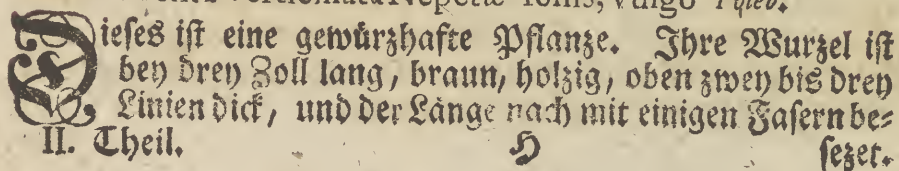 Nepetæ foliis, vulgo
Dieſes iſt eine gewürzhafte Pflanze. Ihre Wurzel iſt
bey drey Zoll lang, braun, holzig, oben zwey bis drey
Linien dick, und der Länge nach mit einigen Faſern be-
II. Theil. H ſezet.